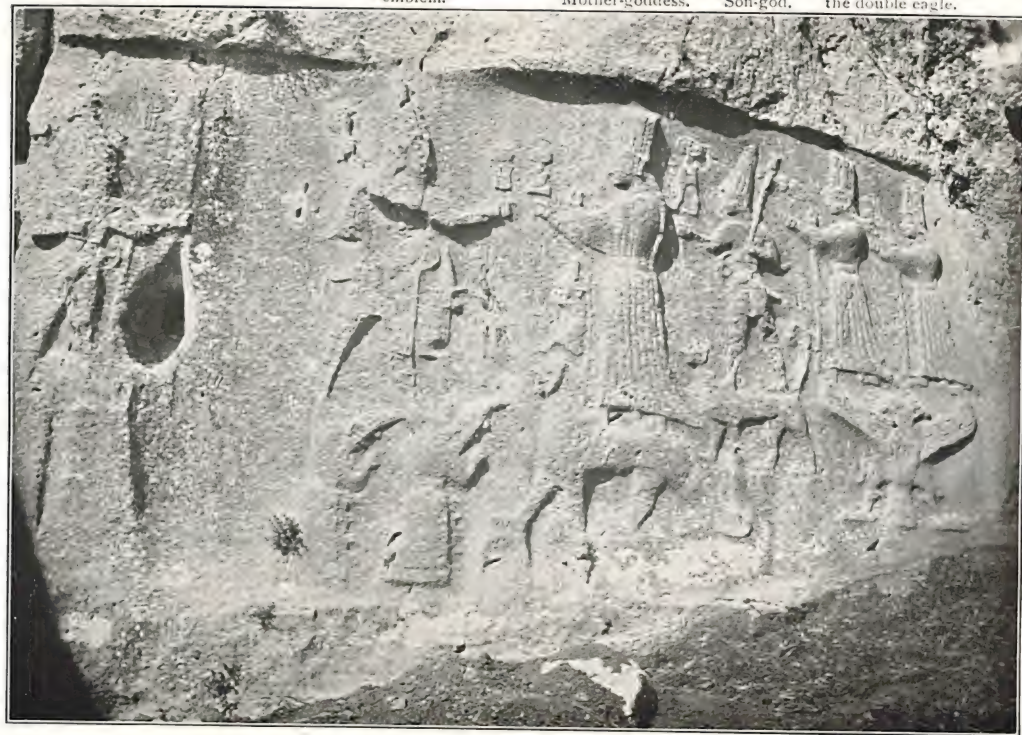 emblem. Mother-goddess. Son-god. the double eagle.